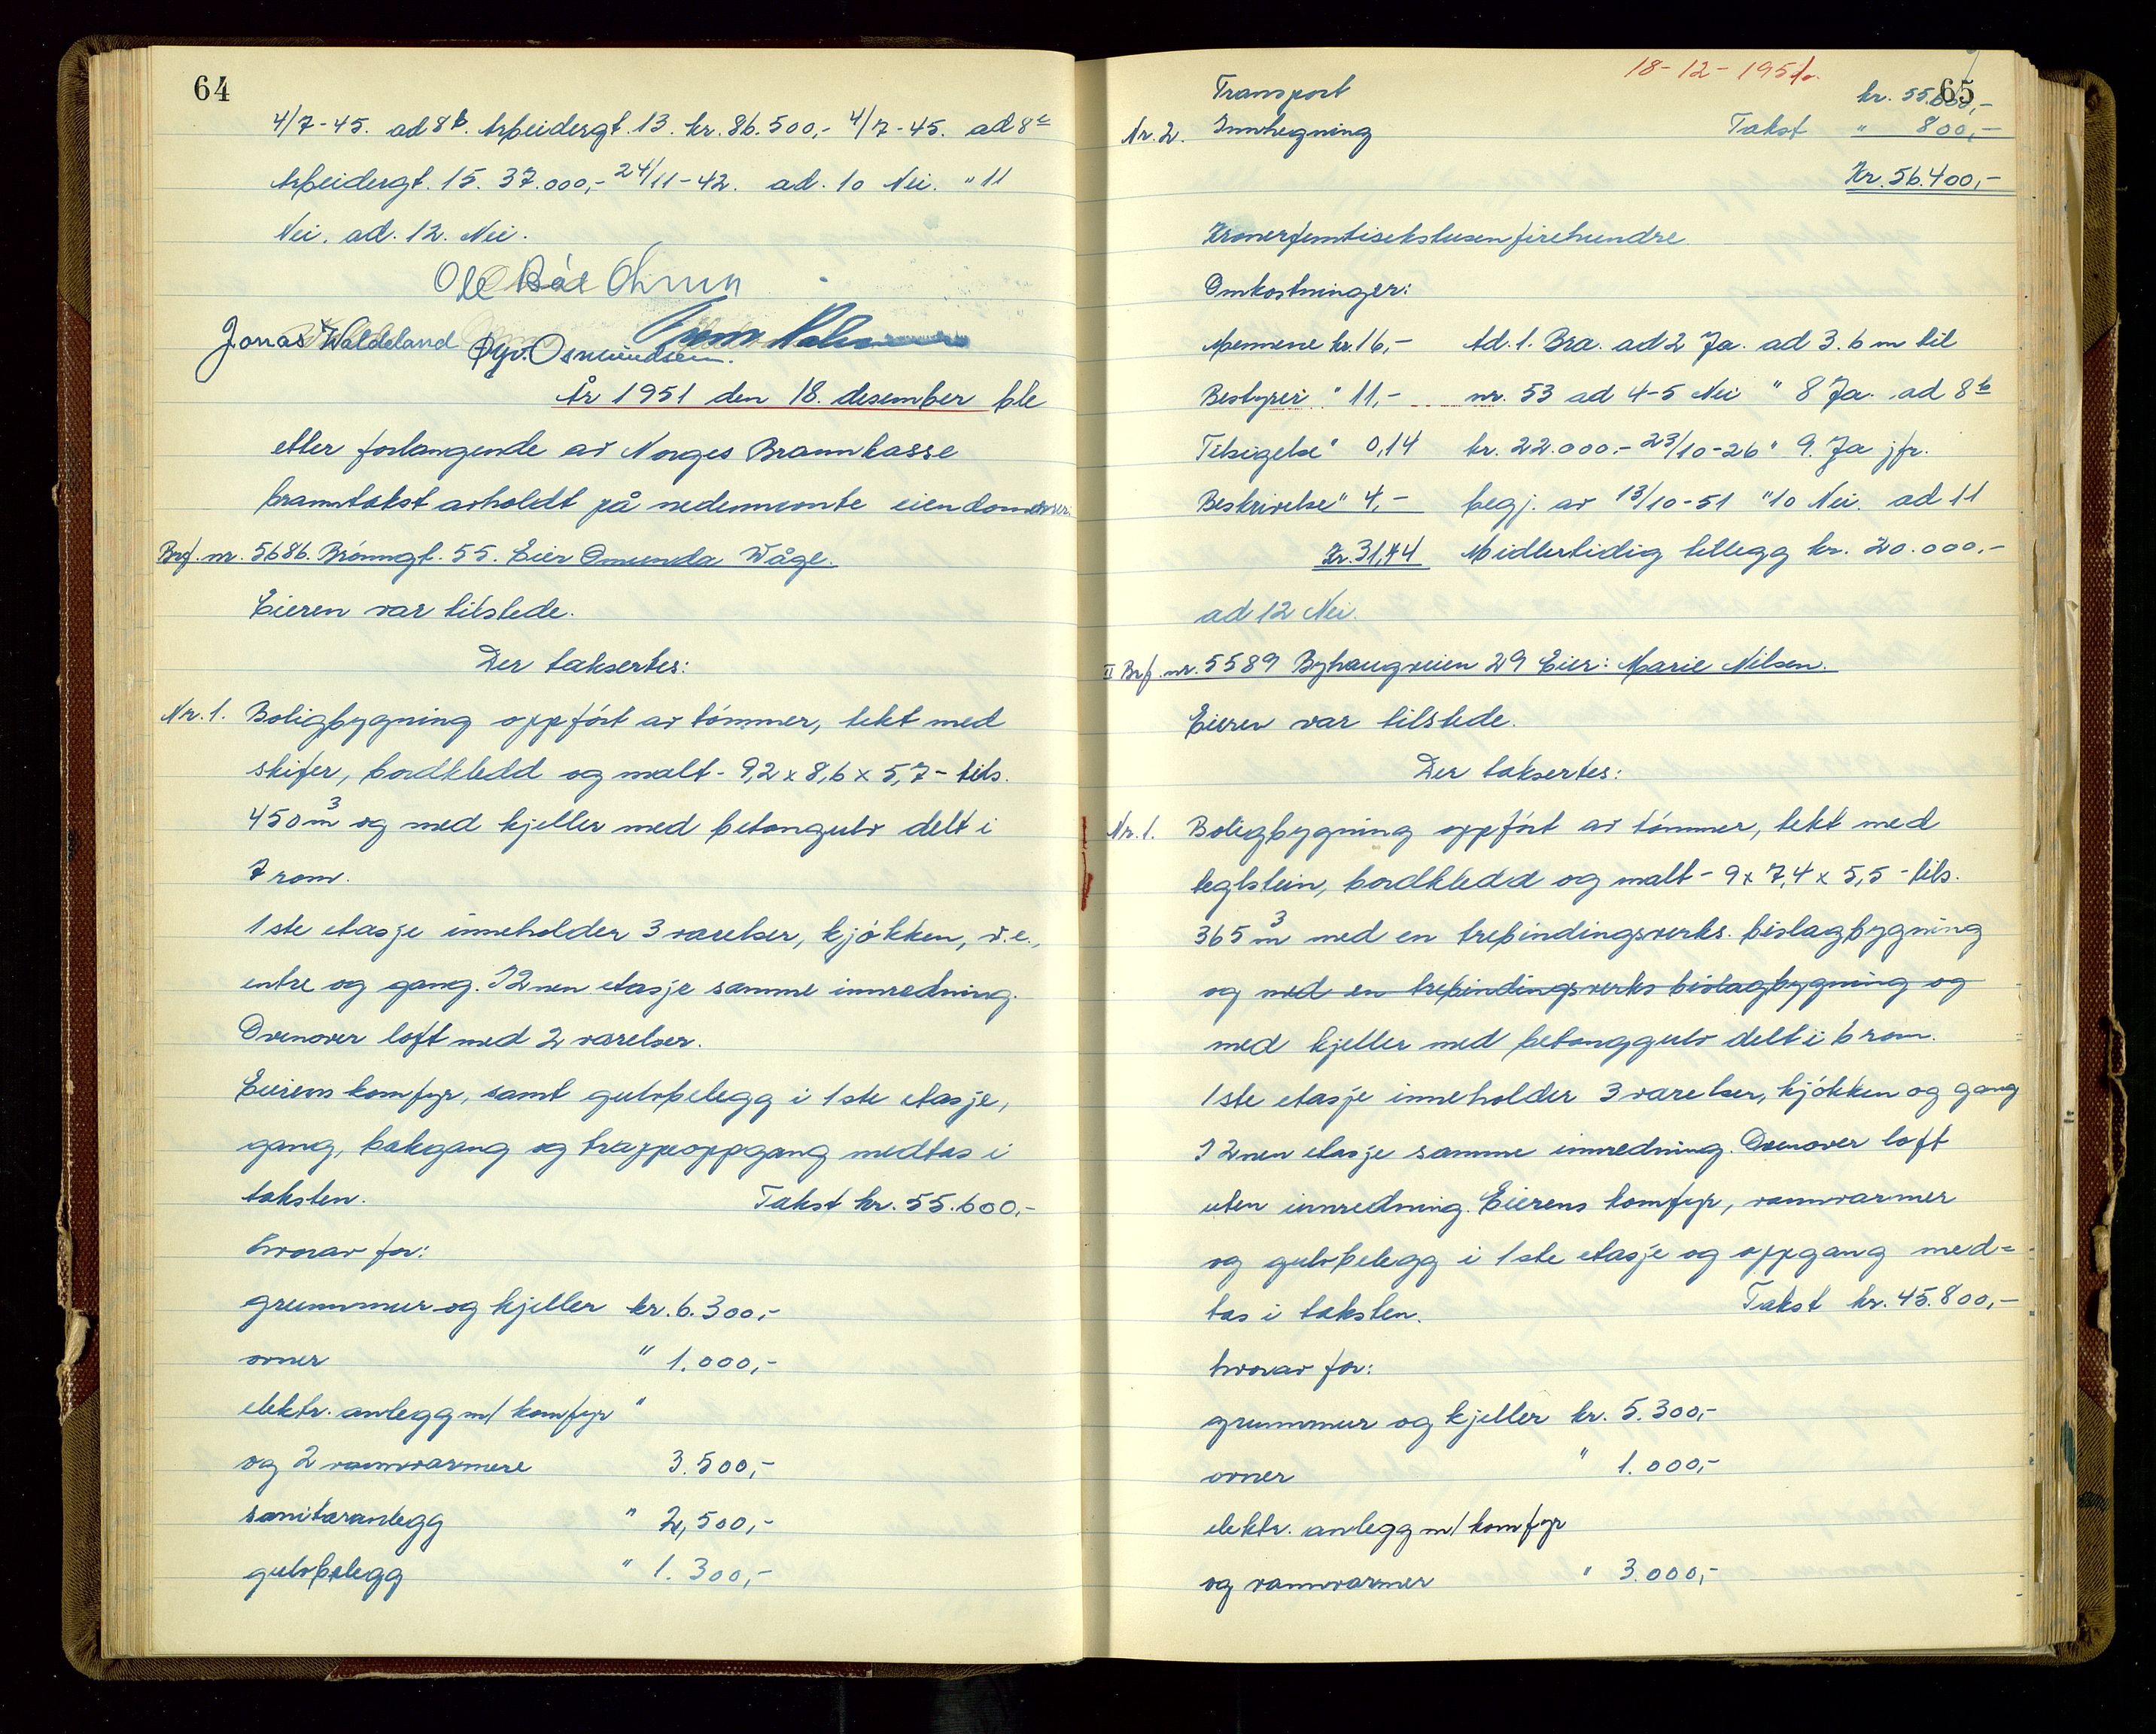 64
4/7-45. ad 8b. Arbeidergt. 13. kr. 86.500,- 4/7-45. ad 8c
Arbeidergt. 15. 37.000,- 24/11-42. ad. 10 Nei. " 11
Nei. ad. 12. Nei.
Jonas Waldeland Osmundsen.
År 1951 den 18. desember ble
etter forlangende av Norges Brannkasse
branntakst avholdt på nedennevnte eiendommer:
Brf. nr. 5686. Brönngt. 55. Eier Omunda Våge.
Eieren var tilstede.
Der taksertes:
Nr. 1. Boligbygning oppfört av tömmer, tekt med
skifer, bordkledd og malt - 9,2 x 8,6 x 5,7 - tils.
450 m3 og med kjeller med betongulv delt i
7 rom.
1ste etasje inneholder 3 varelser, kjökken, v.c.,
entre og gang. I 2nen etasje samme innredning.
Ovenover loft med 2 varelser.
Eierens komfyr, samt gulvbelegg i 1ste etasje,
gang, bakgang og trappeoppgang medtas i
taksten. Takst kr. 55.600,-
hvorav for:
grunnmur og kjeller kr. 6.300,-
ovner " 1.000,-
elektr. anlegg m/ komfyr "
og 2 vannvarmere 3.500,-
sanitæranlegg " 2,500,-
gulvbelegg " 1.300,-
18-12-1951.
65
Transport kr. 55.600,-
Nr. 2. Innhegning Takst " 800,-
Kr. 56.400,-
Kronerfemtisekstusenfirehundre
Omkostninger:
Mennene kr. 16,- Ad. 1. Bra. ad 2 Ja. ad 3. 6 m til
Bestyrer " 11,- nr. 53 ad 4-5 Nei " 8 Ja. ad 8b
Tilsigelse " 0,14 kr. 22.000.- 23/10-26 " 9. Ja jfr.
Beskrivelse " 4,- begj. av 13/10-51 " 10 Nei. ad 11
Kr. 31,44 Midlertidig tillegg kr. 20.000.-
ad 12 Nei.
II Brf. nr. 5589 Byhaugveien 29 Eier: Marie Nilsen.
Eieren var tilstede.
Der taksertes:
Nr. 1. Boligbygning oppfört av tömmer, tekt med
teglstein, bordkledd og malt - 9 x 7,4 x 5,5 - tils.
365 m3 med en trebindingsverks. bislagbygning
og med en trebindingsverks bislagbygning og
med kjeller med betonggulv delt i 6 rom.
1ste etasje inneholder 3 varelser, kjökken og gang
I 2nen etasje samme innredning. Ovenover loft
uten innredning. Eierens komfyr, vannvarmer
og gulvbelegg i 1ste etasje og oppgang med=
tas i taksten. Takst kr. 45.800,-
hvorav for:
grunnmur og kjeller kr. 5.300,-
ovner " 1.000,-
elektr. anlegg m/ komfyr
og vannvarmer " 3.000,-